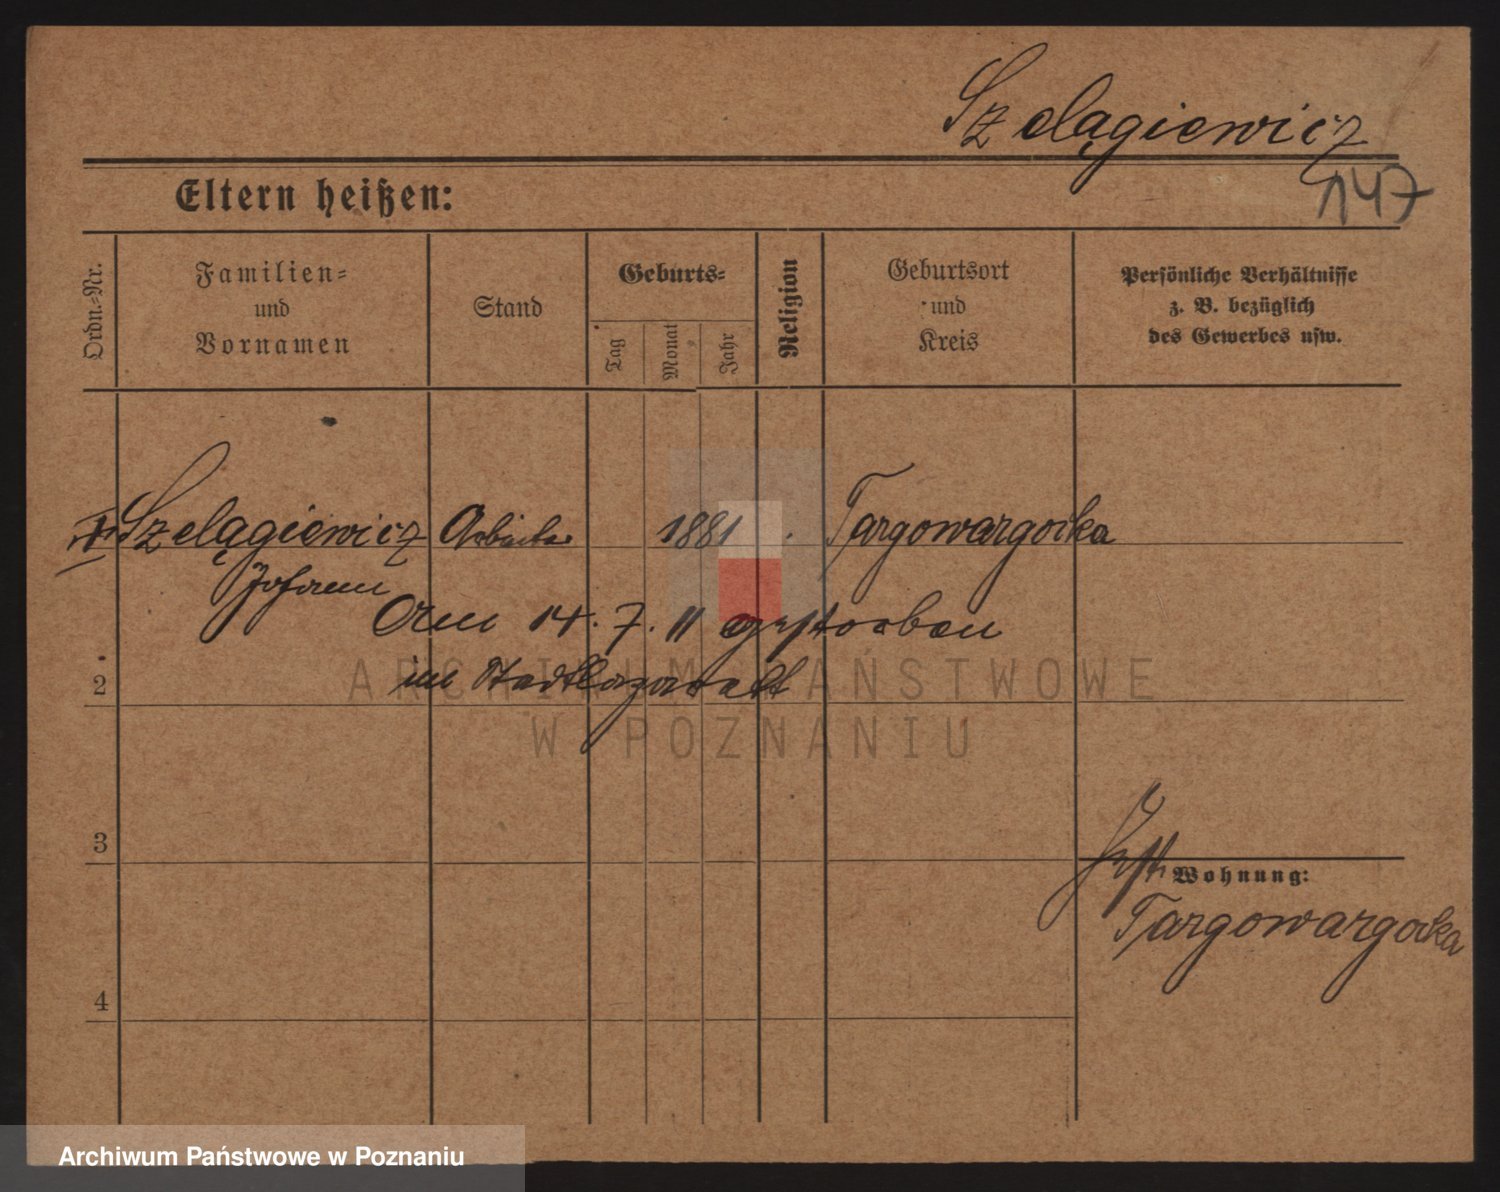 Szelągiewicz
147
Eltern heißen:
Ordn.-Nr.
Familien-
und
Vornamen
Stand
Geburts-
Tag
Monat
Jahr
Religion
Geburtsort
und
Kreis
Persönliche Verhältnisse
z. B. bezüglich
des Gewerbes usw.
Szelągiewicz Arbeiter 1881 Targowagorka
Johann
Am 14. 7. 11 gestorben
im Stadtlazarett
2
ARCHIWUM PAŃSTWOWE
W POZNANIU
3
Wohnung:
Targowagorka
4
Archiwum Państwowe w Poznaniu